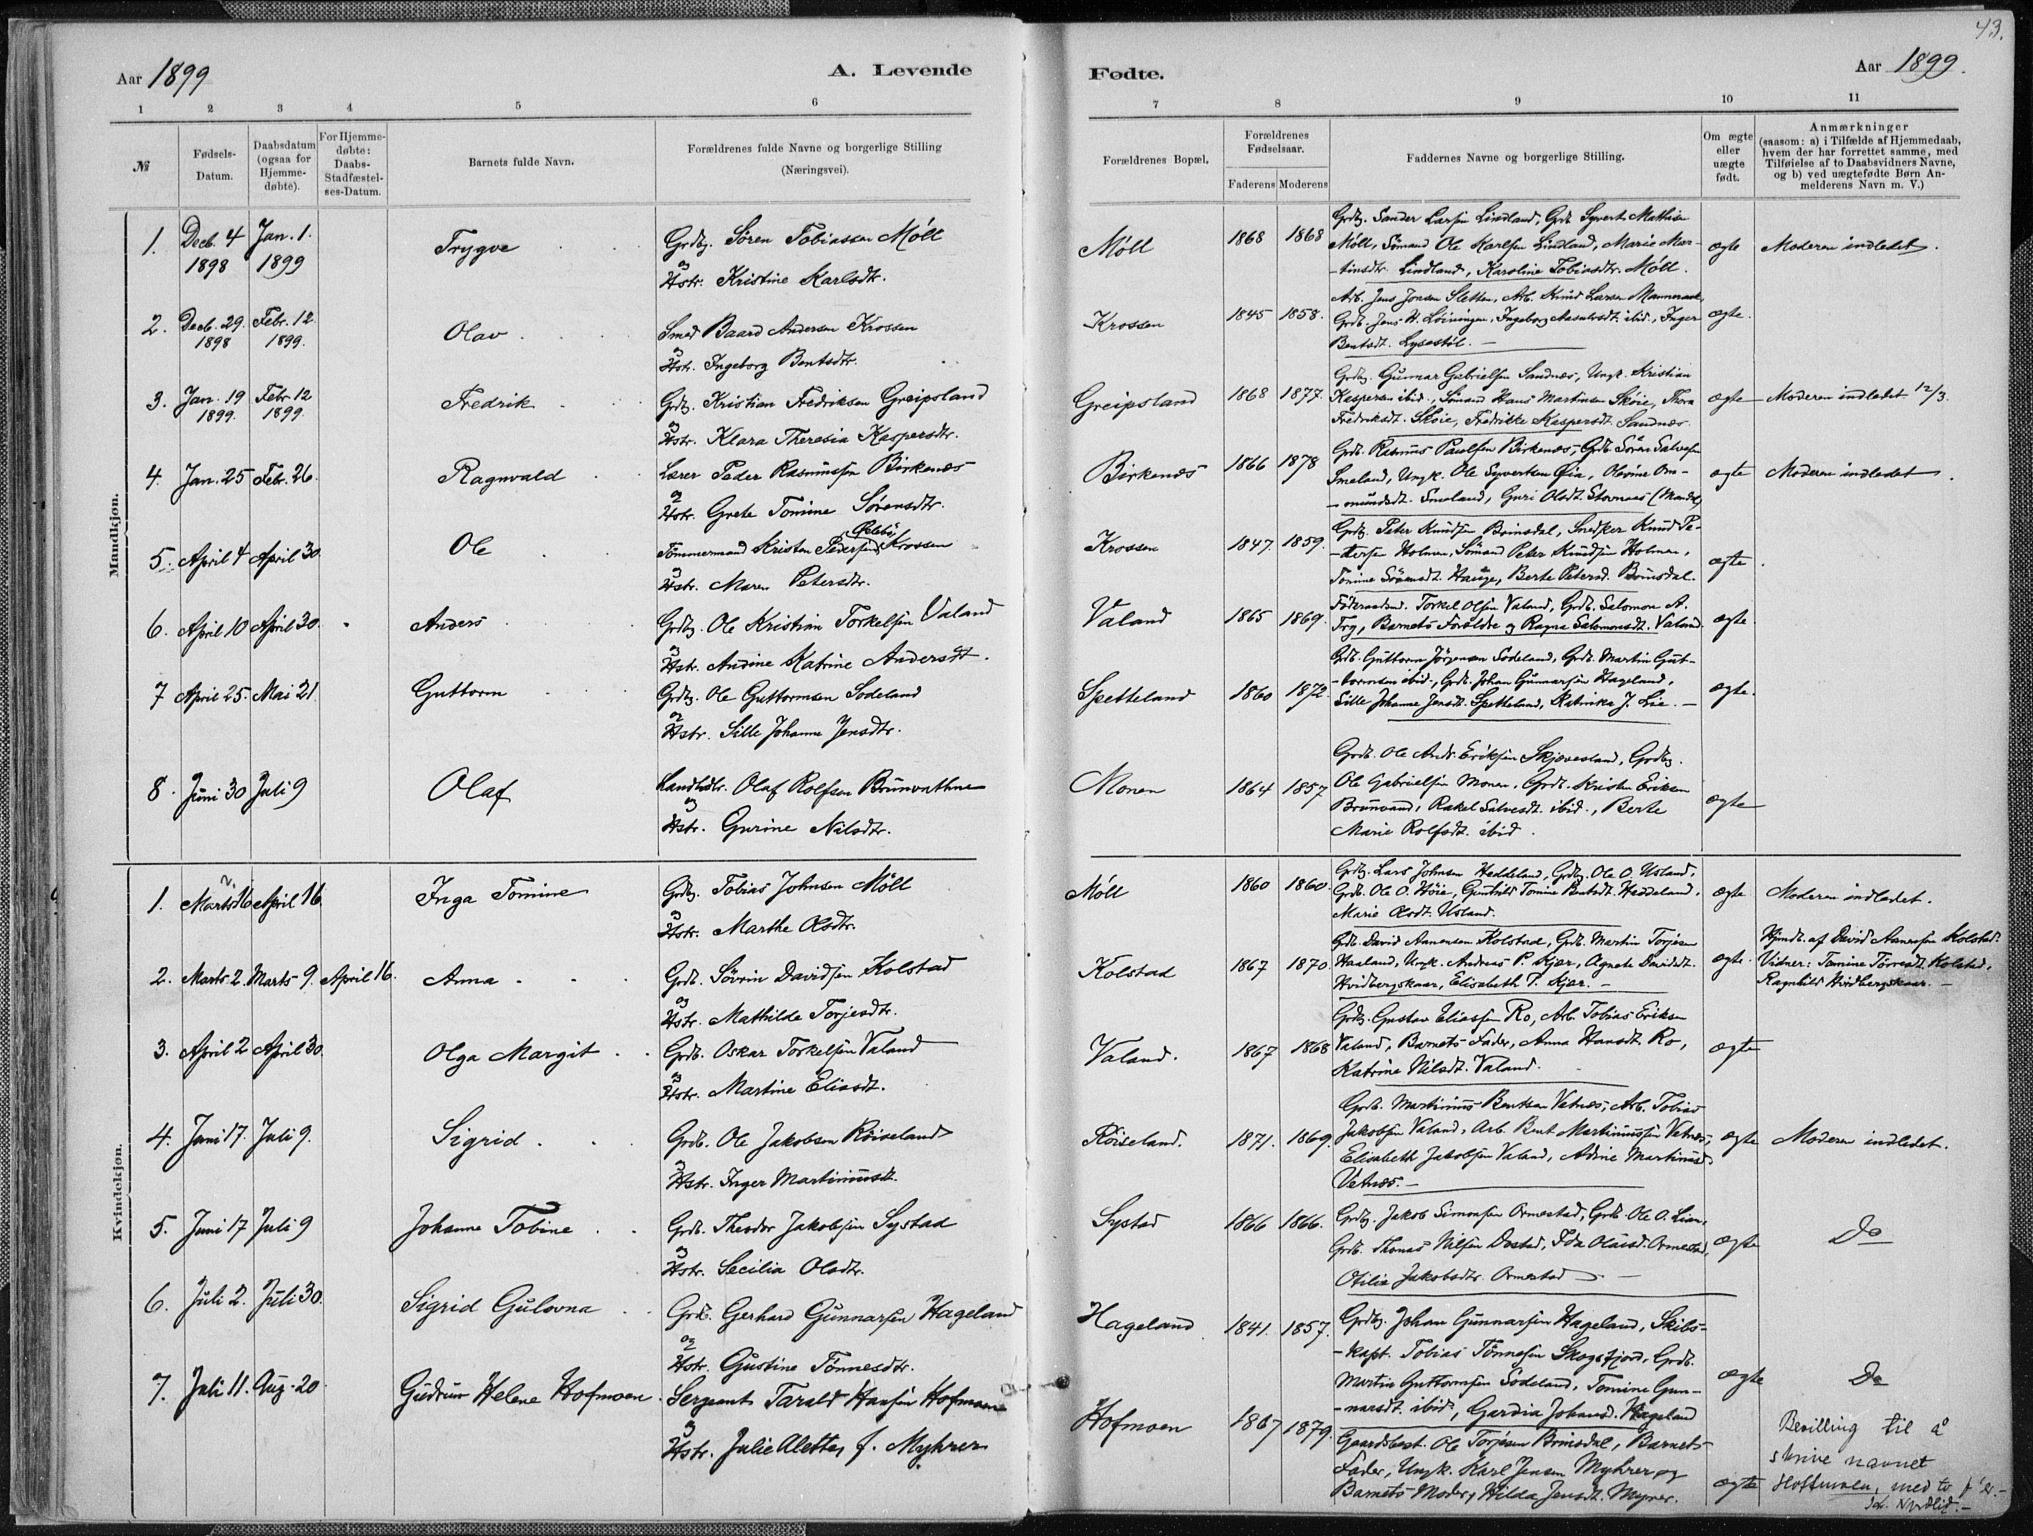 43.
Aar 1899
A. Levende
Fødte.
Aar 1899.
1 2 3 4 5 6
7 8 9 10 11
№
Fødsels-
Datum.
Daabsdatum
(ogsaa for
Hjemme-
døbte).
For Hjemme-
døbte:
Daabs-
Stadfæstel-
ses-Datum.
Barnets fulde Navn.
Forældrenes fulde Navne og borgerlige Stilling
(Næringsvei).
Forældrenes Bopæl.
Forældrenes
Fødselsaar.
Faderens Moderens
Faddernes Navne og borgerlige Stilling.
Om ægte
eller
uægte
født.
Anmærkninger
(saasom: a) i Tilfælde af Hjemmedaab,
hvem der har forrettet samme, med
Tilføielse af to Daabsvidners Navne,
og b) ved uægtefødte Børn An-
melderens Navn m. V.)
Mandkjøn.
1. Decb. 4 1898 Jan. 1. 1899 Trygve
Grdbg. Søren Tobiassen Møll
og
Hstr. Kristine Karlsdtr.
Møll 1868 1868
Grdbg. Sander Larsen Lindland, Grdb. Syvert Mathisen
Møll, Sømand Ole Karlsen Lindland, Marie Mar-
-tinsdtr. Lindland, Karoline Tobiasdtr. Møll.
ægte Moderen indledet.
2. Decb. 29. 1898 Febr. 12. 1899. Olav
Smed Baard Andersen Krossen
og
Hstr. Ingeborg Bentsdtr.
Krossen 1845 1858.
Arb. Jens Jonsen Sletten, Arb. Knud Larsen
Grdb. Jens Ingeborg ibid., Inger
Bentsdt. Lysestøl.
ægte.
3. Jan. 19 1899. Febr. 12 1899. Fredrik
Grdbg. Kristian Fredriksen Greipsland
og
Hstr. Klara Theresia Kaspersdtr.
Greipsland 1868 1877.
Grdbg. Gunnar Gabrielsen Sandnæs, Ungk. Kristian
Kaspersen ibid., Sømand Hans Martinsen Skøie, Thora
Fredriksdt. Skøie, Fredrikke Kaspersdt. Sandnæs.
ægte Moderen indledet 12/3.
4. Jan. 25 Febr. 26. Ragnvald
Lærer Peder Rasmussen Birkenæs
og
Hstr. Grete Tomine Sørensdtr.
Birkenæs 1866 1878
Grdb. Rasmus Paulsen Birkenæs, Grdb. Sören Salvesen
Smeland, Ungk. Ole Syvertsen Øia, Olevine Om-
-mundsdt. Smeland, Guri Olsdt. Stornæs (Mandal)
ægte Moderen indledet.
5. April 4 April 30. Ole
Tømmermand Kristen Pedersen Krossen
og
Hstr. Maren Petersdtr.
Krossen 1847. 1859.
Grdbg. Peter Knudsen Brinsdal, Snedker Knud Pe-
-dersen Holmen, Sømand Peter Knudsen Holmen,
Tomine Sörensdt. Hauge, Berte Petersd. Brinsdal.
ægte.
6. April 10 April 30. Anders
Grdbg. Ole Kristian Torkelsen Valand
og
Hstr. Andine Katrine Andersdt.
Valand 1865 1869.
Føderaadsmd. Torkel Olsen Valand, Grdb. Salomon A.
Try, Barnets Forældre og Ragna Salomonsdt. Valand.
ægte.
7 April 25. Mai 21 Guttorm
Grdbg. Ole Guttormsen Sodeland
og
Hstr. Sille Johanne Jensdtr.
Spetteland 1860 1872.
Grdb. Guttorm Jörgensen Sodeland, Grdb. Martin Gut-
-tormsen ibid., Grdb. Johan Gunnarsen Hageland,
Sille Johanne Jensdt. Spetteland, Katinka J. Lie.
ægte.
8. Juni 30 Juli 9 Olaf
Handlsdr. Olaf Rolfsen Brunvathne
og
Hstr. Gurine Nilsdtr.
Monen 1864 1857
Grdb. Ole Andr. Eriksen Skjævesland, Grdbg.
Ole Gabrielsen Monen, Grdb. Kristen Eriksen
Brunvand, Rakel Salvesdt. ibid., Berte
Marie Rolfsdt. ibid.
ægte
Kvindekjøn.
1. Marts 16 April 16 Inga Tomine
Grdbg. Tobias Johnsen Møll
og
Hstr. Marthe Olsdtr.
Møll 1860 1860.
Grdbg. Lars Johnsen Heddeland, Grdbg. Ole O. Usland,
Grdb. Ole O. Høie, Gunhild Tomine Bentsdt. Heddeland,
Marie Olsdt. Usland.
ægte Moderen indledet.
2. Marts 2. Marts 9. April 16. Anna
Grdb. Søvrin Davidsen Kolstad
og
Hstr. Mathilde Torjesdtr.
Kolstad 1867 1870.
Grdb. David Aanensen Kolstad, Grdb. Martin Torjesen
Haaland, Ungk. Andreas P. Kjær, Agnete Davidsdt.
Hvidbergskaar, Elisabeth T. Kjær.
ægte.
Hjmdb. af David Aanensen Kolstad.
Vidner: Tomine Torresdt. Kolstad,
Ragnhild Hvidbergskaar.
3. April 2 April 30. Olga Margit
Grdb. Oskar Torkelsen Valand
og
Hstr. Martine Eliasdt.
Valand. 1867 1868
Grdbg. Gustav Eliassen Ro, Arb. Tobias Eriksen
Valand, Barnets Fader, Anna Hansdt. Ro,
Katrine Nilsdt. Valand.
ægte
4. Juni 17. Juli 9. Sigrid
Grdb. Ole Jakobsen Röiseland
og
Hstr. Inger Martiniusdt.
Röiseland. 1871. 1869.
Grdb. Martinius Bentsen Vatnæs, Arb. Tobias
Jakobsen Valand, Arb. Bent Martiniussen Vatnæs,
Elisabeth Jakobsen Valand, Adine Martinusd.
Vatnæs.
ægte Moderen indledet.
5. Juni 17 Juli 9 Johanne Tobine
Grdb. Theodor Jakobsen Systad
og
Hstr. Secilia Olsdtr.
Systad 1866 1866.
Grdbg. Jakob Simonsen Ormestad, Grdb. Ole O. Lian,
Grdb. Thomas Nilsen Dostad, Ida Olausd. Ormestad,
Otilia Jakobsdtr. Ormestad
ægte Do
6. Juli 2. Juli 30. Sigrid Gulovna
Grdb. Gerhard Gunnarsen Hageland
og
Hstr. Gustine Tönnesdtr.
Hageland 1841. 1857.
Grdbg. Johan Gunnarsen Hageland, Skibs-
-kapt. Tobias Tönnesen Skogsfjord, Grdb.
Martin Guttormsen Sodeland, Tomine Gun-
-narsdt. ibid., Gardia Johansd. Hageland
ægte Do
7. Juli 11. Aug. 20. Gudrun Helene Hofmoen
Sergeant Tarald Hansen Hofmoen
og
Hstr. Julie Alette, f. Myhrer
Hofmoen 1867 1879.
Gaardsbest. Ole Torjesen Brinsdal, Barnets
Fader, Ungk. Karl Jensen Myhrer og
Barnets Moder, Hilda Jensdt. Myrer.
ægte
Bevilling til å
skrive navnet
Hoffmoen, med to f'er.